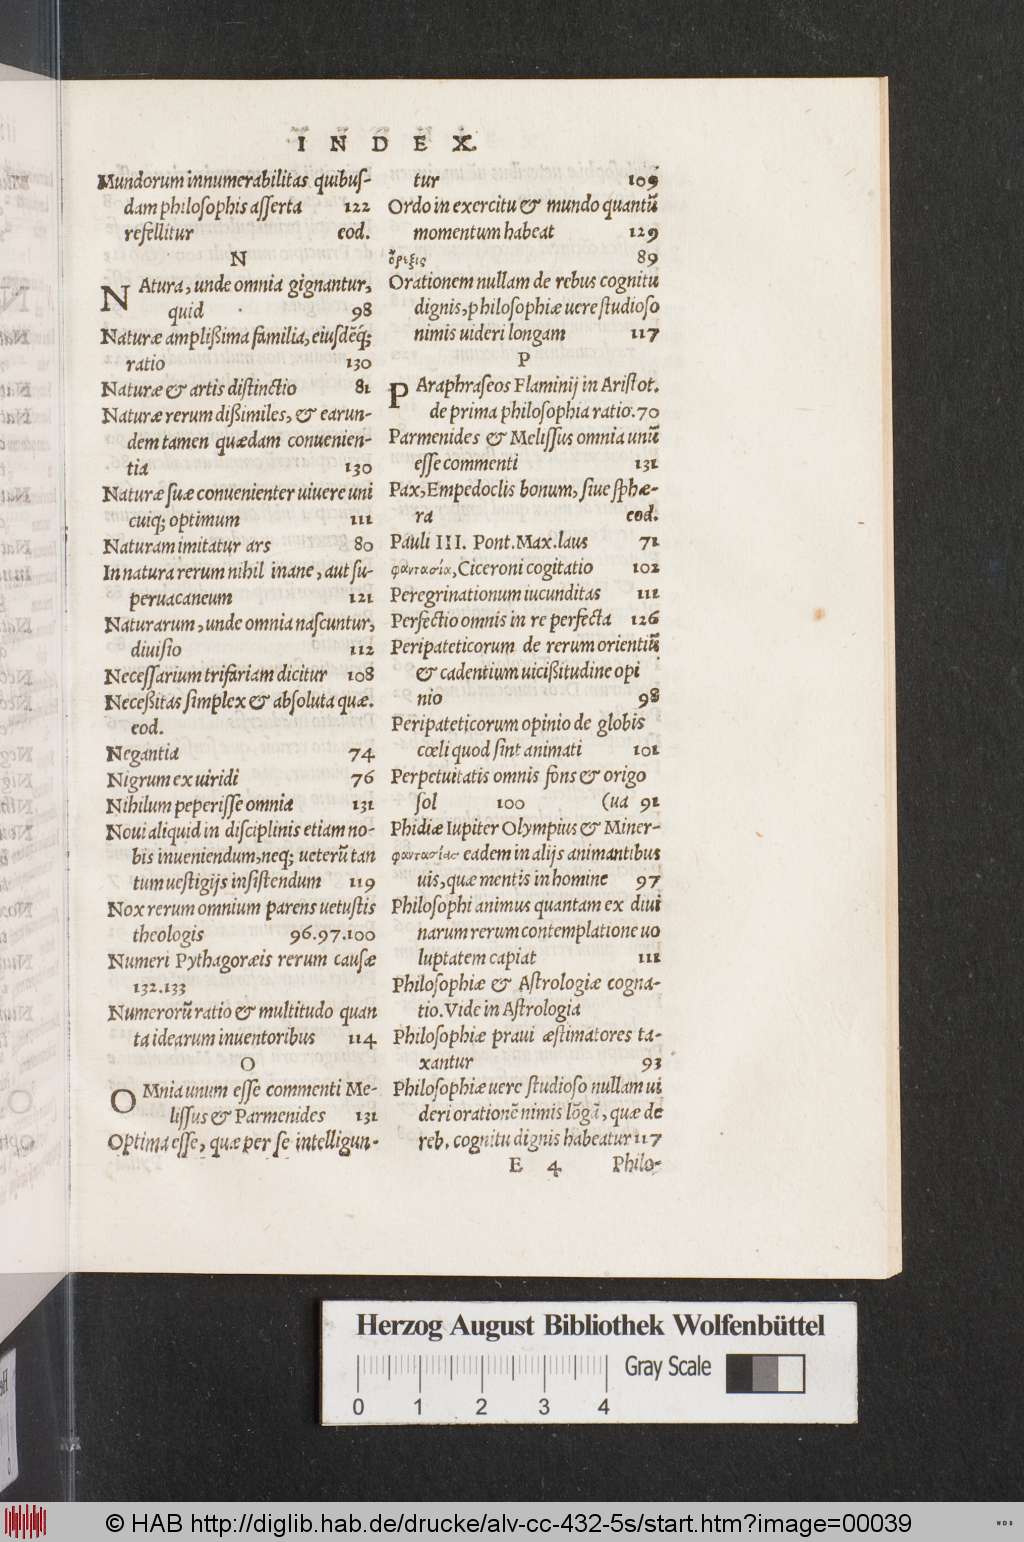 INDEX.
Mundorum innumerabilitas quibus-
dam philosophis asserta 122
refellitur eod.
N
NAtura, unde omnia gignantur,
quid 98
Naturæ amplißima familia, eiusdẽq́;
ratio 130
Naturæ & artis distinctio 81
Naturæ rerum dißimiles, & earun-
dem tamen quædam conuenien-
tia 130
Naturæ suæ conuenienter uiuere uni
cuiq; optimum 111
Naturam imitatur ars 80
In natura rerum nihil inane, aut su-
peruacaneum 121
Naturarum, unde omnia nascuntur,
diuisio 112
Necessarium trifariam dicitur 108
Neceßitas simplex & absoluta quæ.
eod.
Negantia 74
Nigrum ex uiridi 76
Nihilum peperisse omnia 131
Noui aliquid in disciplinis etiam no-
bis inueniendum, neq; ueterũ tan
tum uestigijs insistendum 119
Nox rerum omnium parens uetustis
theologis 96.97.100
Numeri Pythagoræis rerum causæ
132.133
Numerorũ ratio & multitudo quan
ta idearum inuentoribus 114
O
OMnia unum esse commenti Me-
lissus & Parmenides 131
Optima esse, quæ per se intelligun-
tur 109
Ordo in exercitu & mundo quantũ
momentum habeat 129
ὄρεξις 89
Orationem nullam de rebus cognitu
dignis, philosophiæ uere studioso
nimis uideri longam 117
P
PAraphraseos Flaminij in Aristot.
de prima philosophia ratio. 70
Parmenides & Melissus omnia unũ
esse commenti 131
Pax, Empedoclis bonum, siue sphæ-
ra eod.
Pauli III. Pont. Max. laus 71
φαντασία, Ciceroni cogitatio 102
Peregrinationum iucunditas 111
Perfectio omnis in re perfecta 126
Peripateticorum de rerum orientiũ
& cadentium uicißitudine opi
nio 98
Peripateticorum opinio de globis
cœli quod sint animati 101
Perpetuitatis omnis fons & origo
sol 100 (ua 91
Phidiæ Iupiter Olympius & Miner-
φαντασίας eadem in alijs animantibus
uis, quæ mentis in homine 97
Philosophi animus quantam ex diui
narum rerum contemplatione uo
luptatem capiat 111
Philosophiæ & Astrologiæ cogna-
tio. Vide in Astrologia
Philosophiæ praui æstimatores ta-
xantur 93
Philosophiæ uere studioso nullam ui
deri orationẽ nimis lõgã, quæ de
reb. cognitu dignis habeatur 117
E 4 Philo-
Herzog August Bibliothek Wolfenbüttel
0 1 2 3 4
Gray Scale
© HAB http://diglib.hab.de/drucke/alv-cc-432-5s/start.htm?image=00039